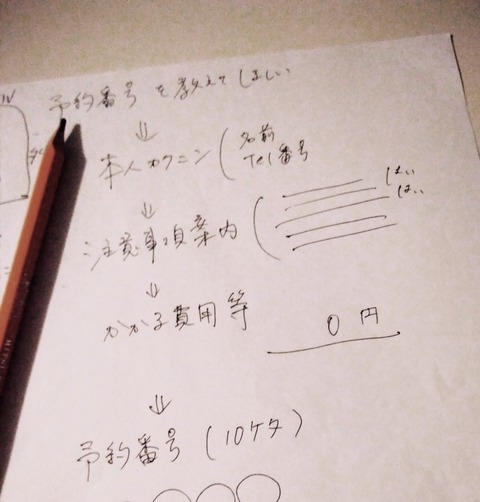 予約番号を教えてほしい
⇓
本人カクニン(名前
Tel番号
⇓
注意事項案内(
はい
はい
⇓
かかる費用等
0円
⇓
予約番号(10ケタ)